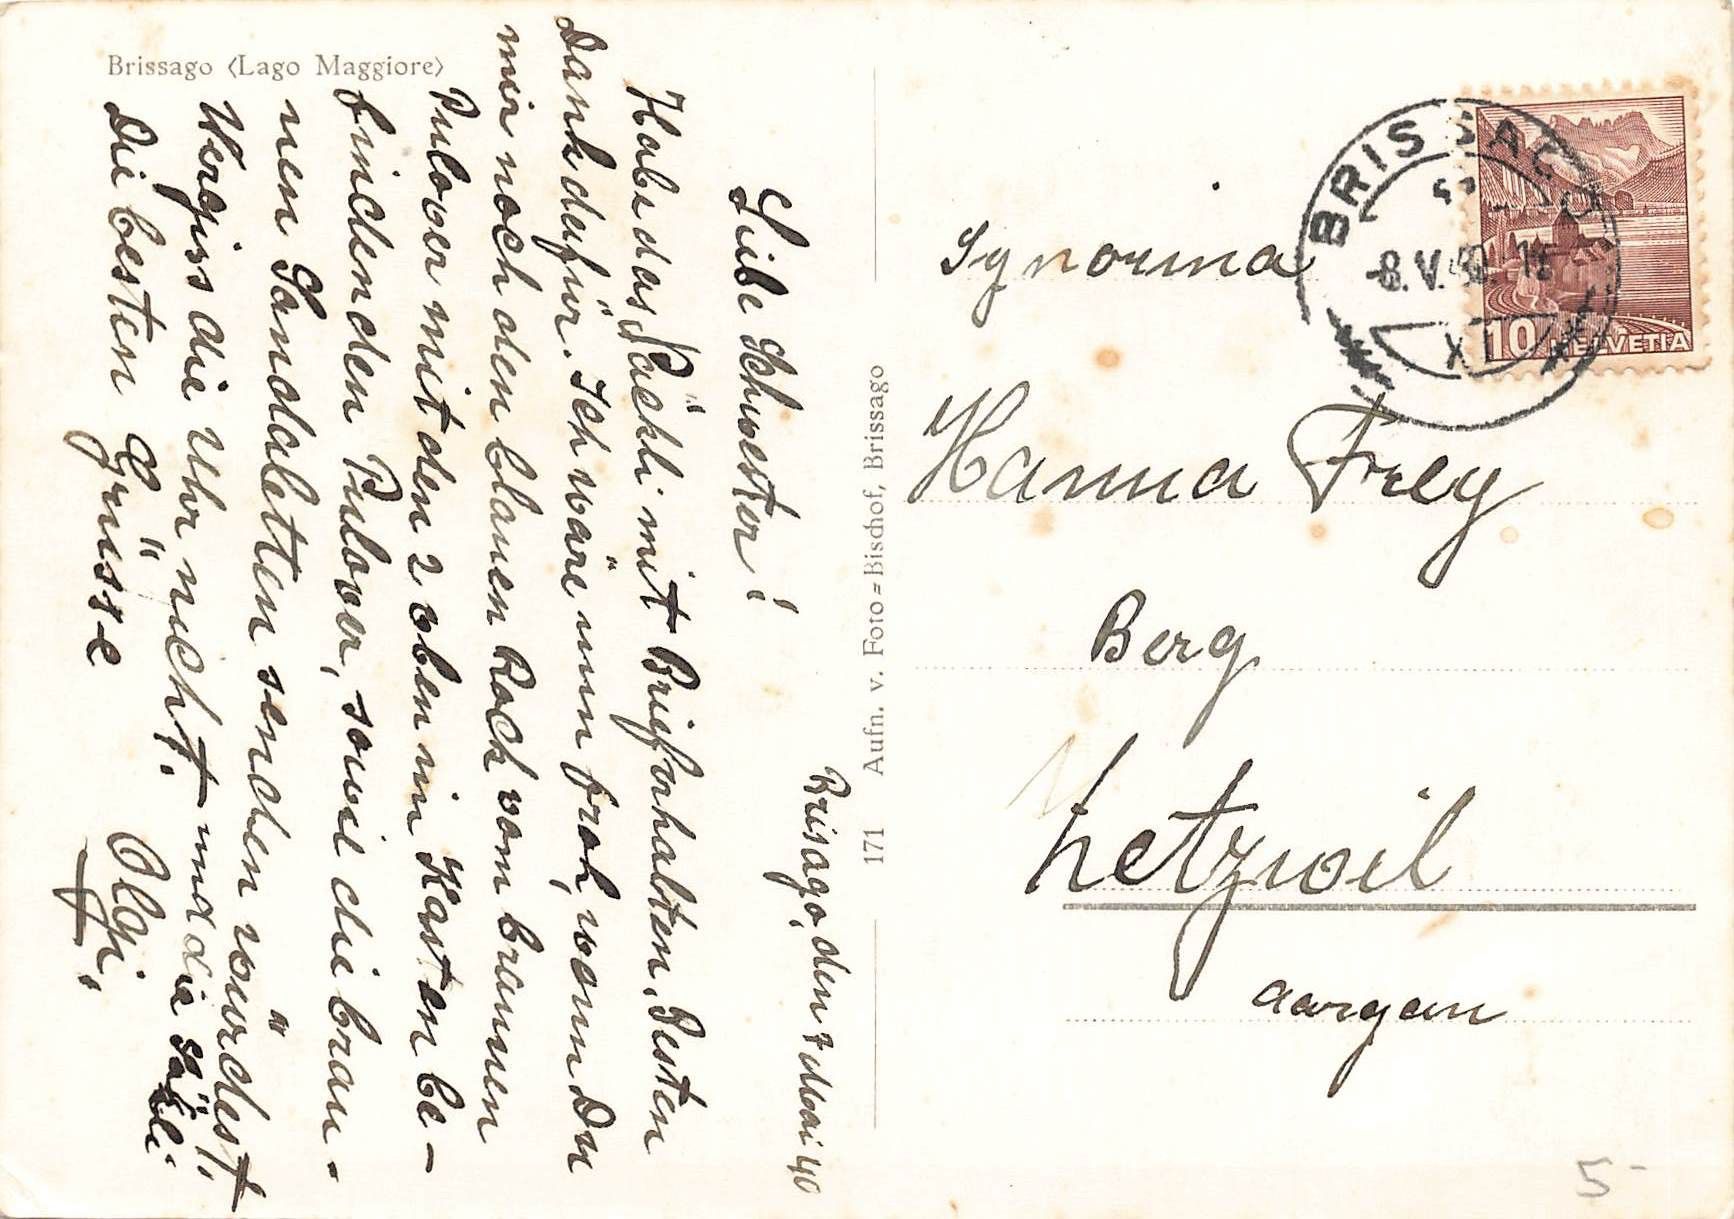 Brissago <Lago Maggiore>
Brisago, den 7 Mai 40
Liebe Schwester!
Habe das Päckli mit Brief erhalten. Besten
Dank dafür. Ich wäre nun froh, wenn Du
mir noch den blauen Rock vom braunen
Pulover mit den 2 oben im Kasten be-
findenden Pulover, sowie die brau-
nen Sandaletten senden würdest!
Vergiss die Uhr nicht. und die säckli.
Die besten Grüsse
Olgi.
171 Aufn. v. Foto=Bischof, Brissago
BRISSAGO
-8.V.40.
XI
10 HELVETIA
Synorina
Hanna Frey
Berg
Letzwil
Aargau
5-